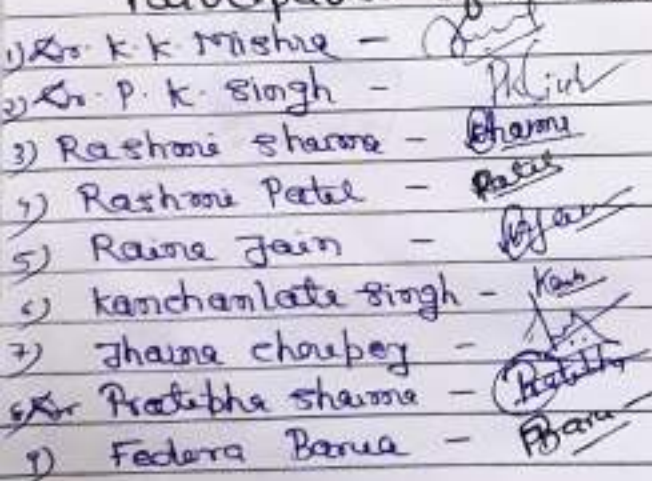 1) Dr. K. K. Mishra -
2) Dr. P. K. Singh - PKSingh
3) Rashmi Sharma - Sharma
4) Rashmi Patel - Patel
5) Raina Jain -
6) Kanchanlata Singh -
7) Jhaina Choubey -
8) Dr Pratibha Sharma - Pratibha
9) Federa Barua - FBarua